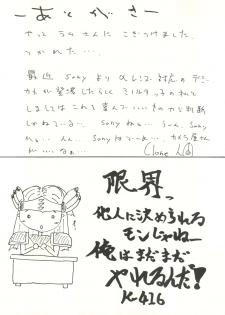 ーあとがきー
やっとラストさんにこぎつけました。
つかれた…。
最近 Sonyより αレンズ対応のデジ
カメが登場したらしく ミノルタっ子の私と
しましてはこれを喜んでいいものか判断
しかねている…。Sonyねぇ…。うーん、Sony
ねぇ…。んん…。Sonyねぇ…。カメラ屋さん
限界っ
他人に決められる
モンじゃねー
俺はまだまだ
やれるんだ!
K-416